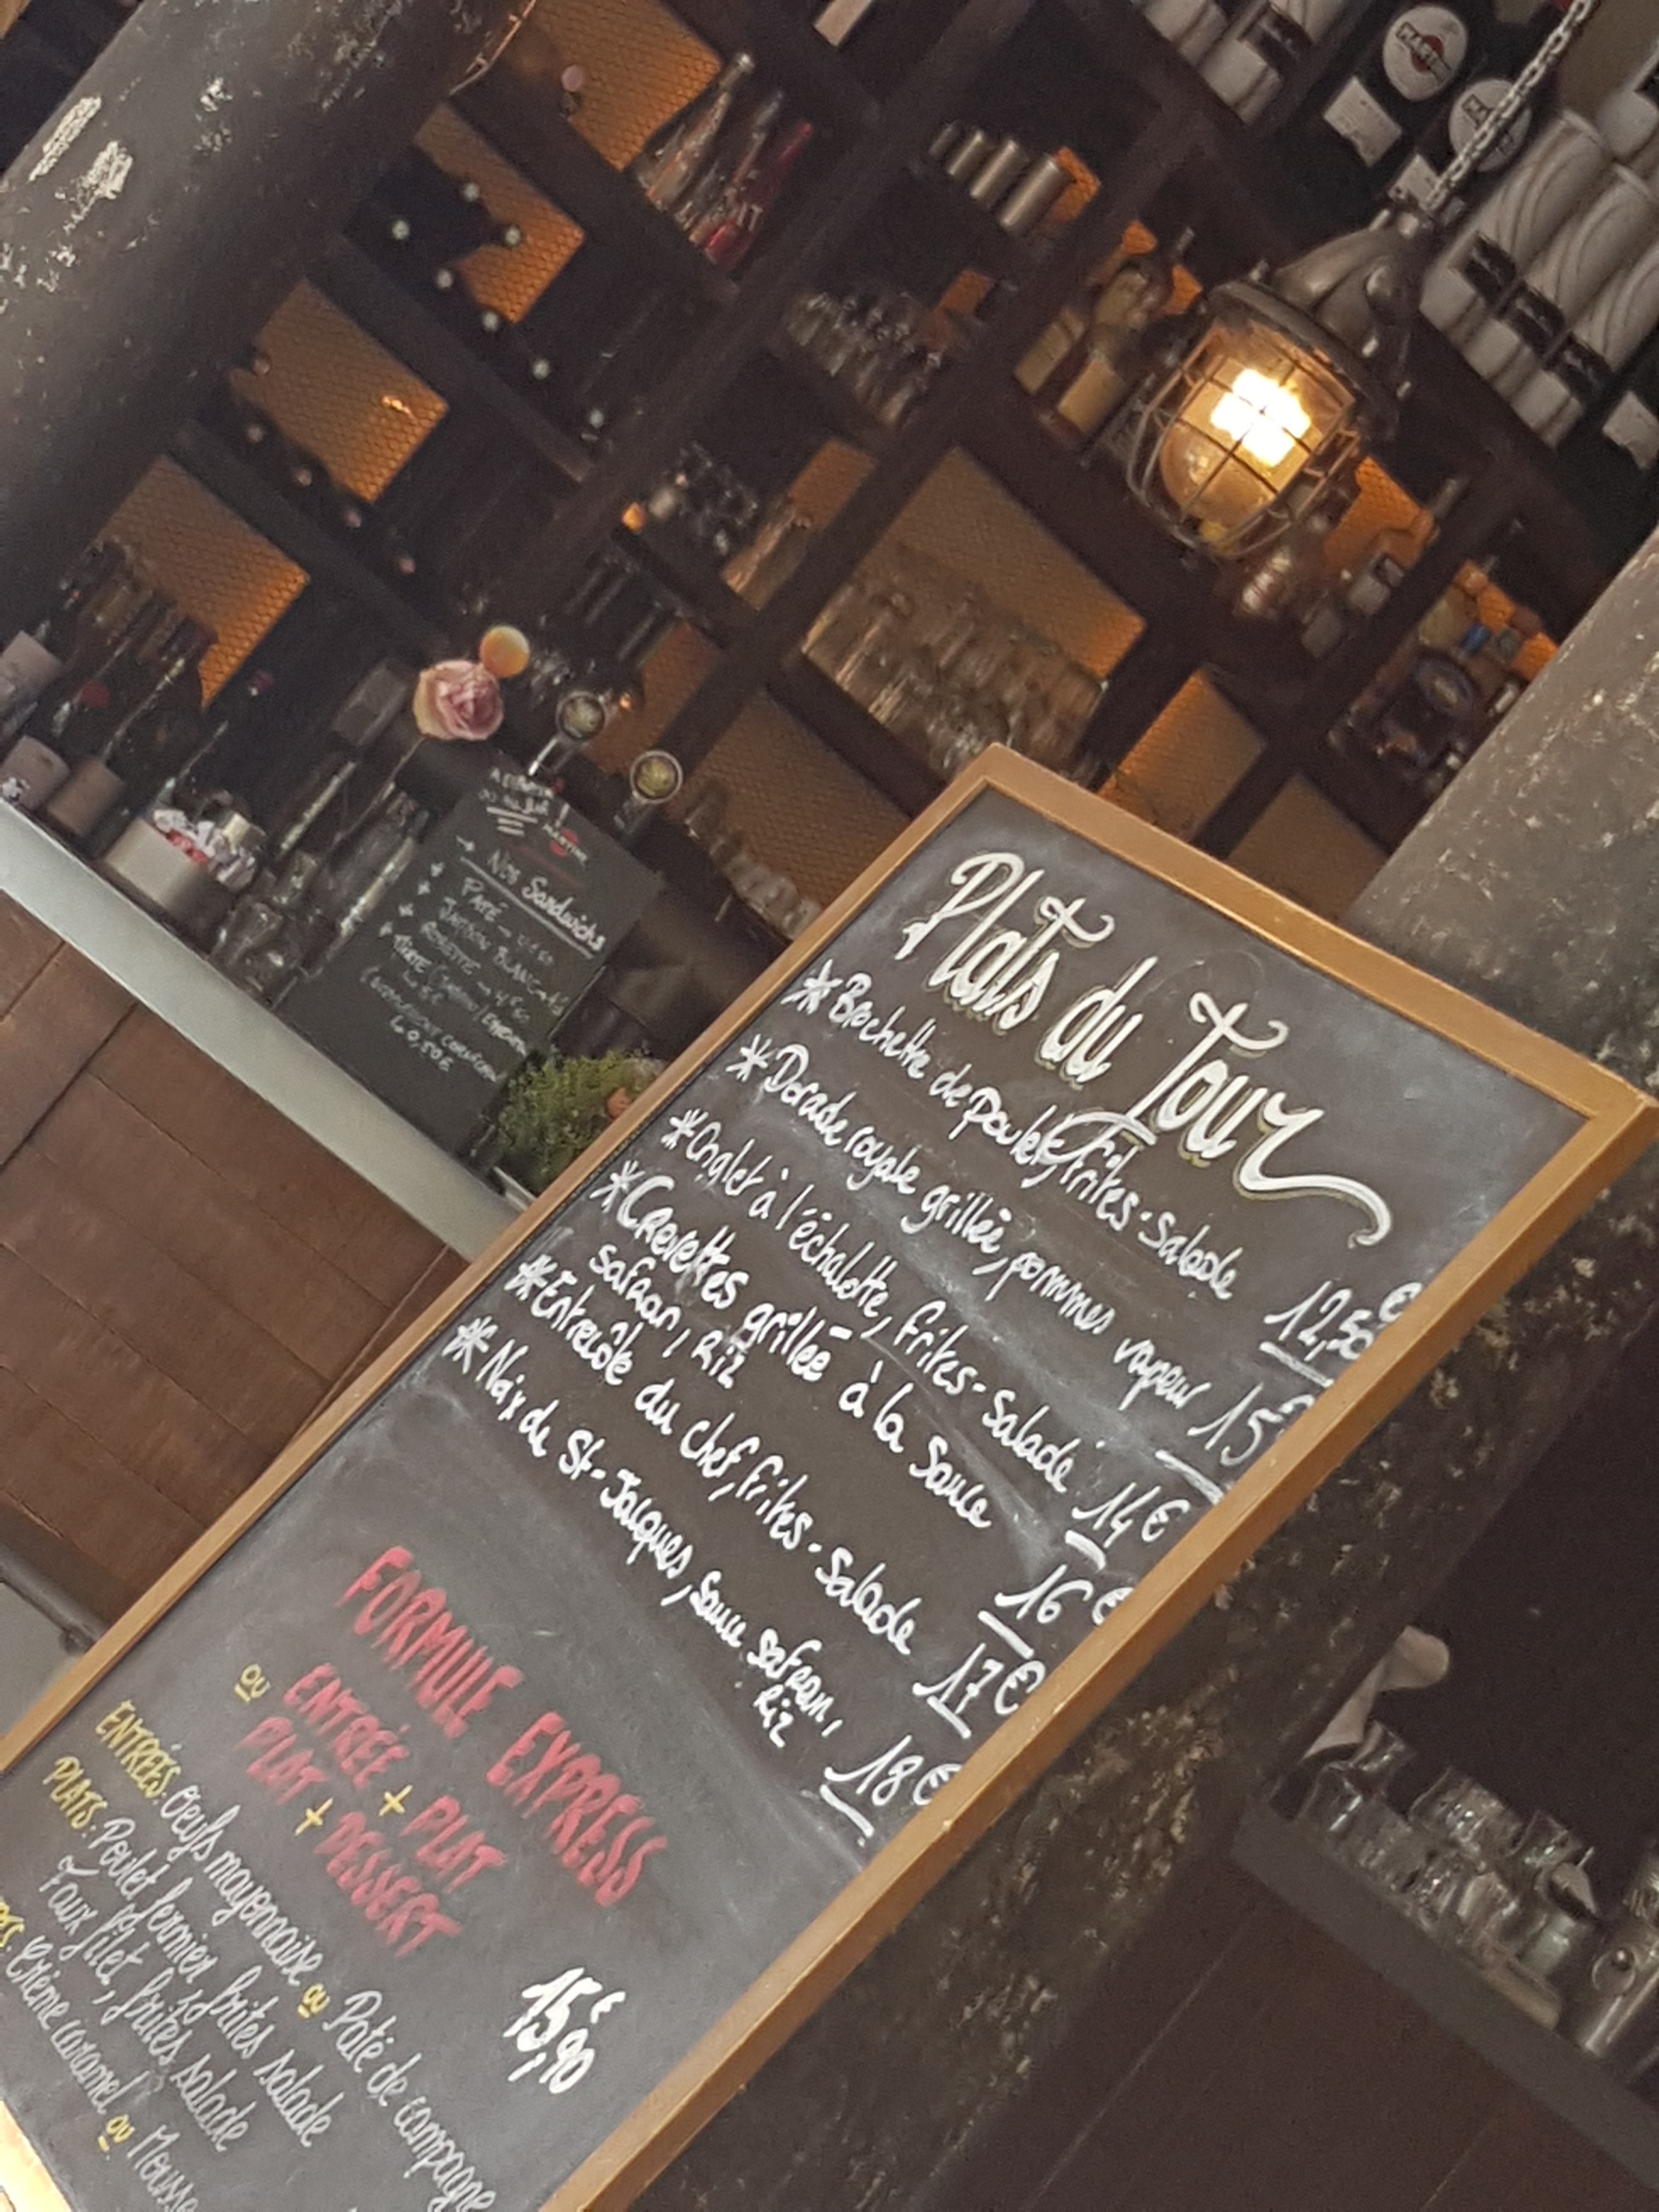 Plats du Jour
* Brochette de poulet, frites-salade 12,50 €
* Dorade royale grillée, pommes vapeur 15
* Onglet à l'échalotte, frites-Salade 14 €
* Crevettes grillée à la Sauce
safran, Riz 16 €
* Entrecôte du chef, frites-salade 17 €
* Noix de St-Jacques, sauce safran,
Riz 18 €
FORMULE EXPRESS
ENTRÉE + PLAT
ou PLAT + DESSERT
15,90 €
ENTRÉES: Oeufs mayonnaise ou Pâté de campagne
PLATS: Poulet fermier frites salade
Faux filet, frites salade
Crème caramel ou Mousse
→ Nos Sandwichs
PATÉ
JAMBON BLANC
ROSETTE
MARTINI